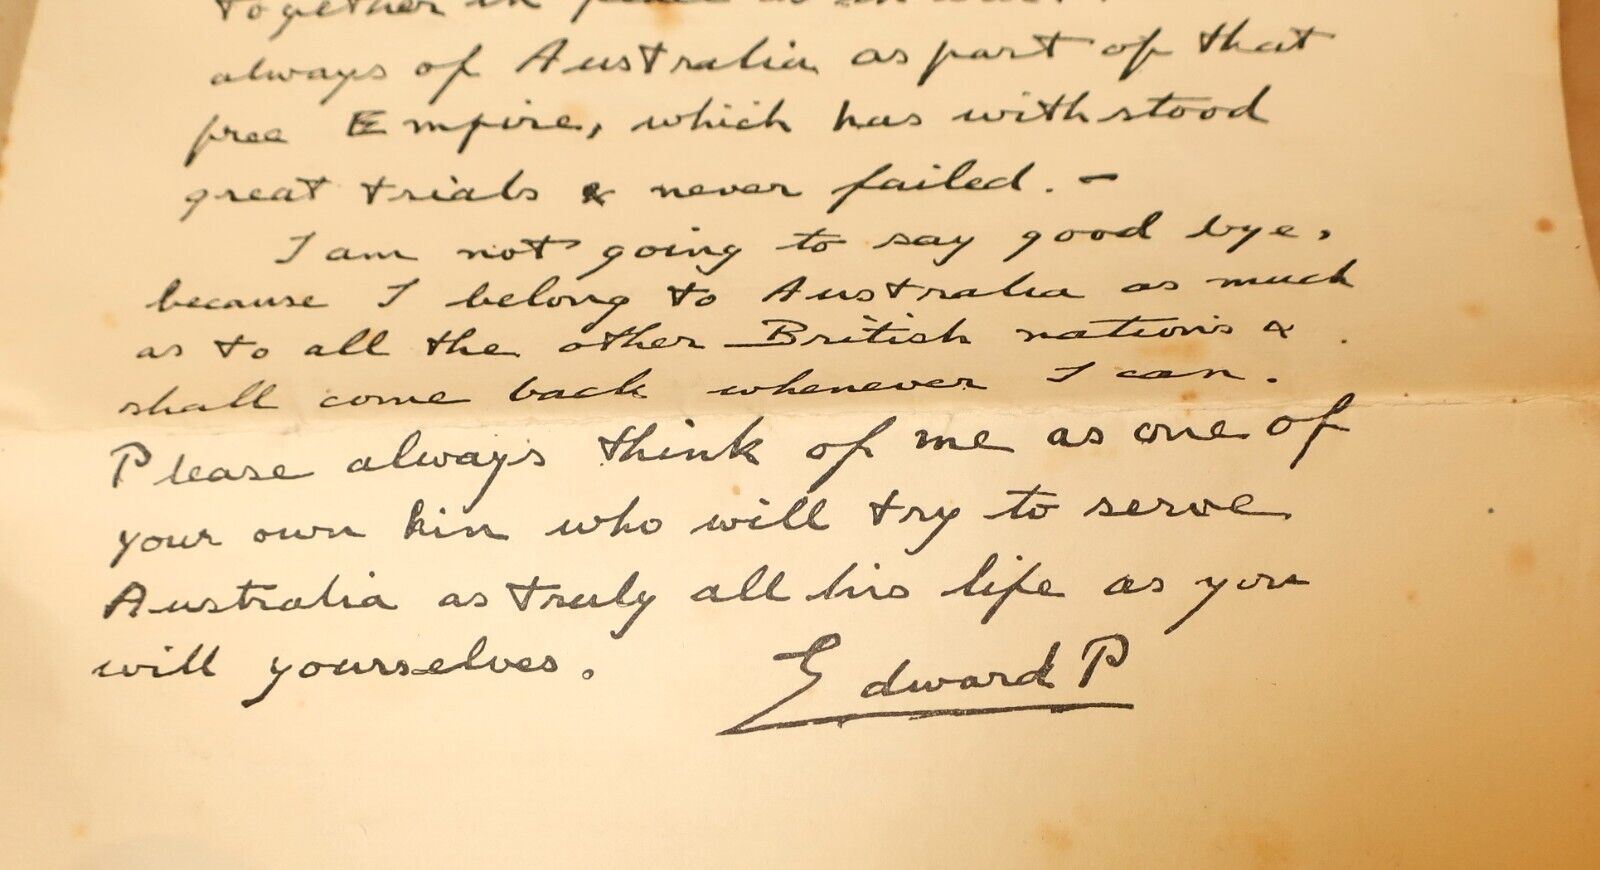 together in peace as in war.
always of Australia as part of that
free Empire, which has withstood
great trials & never failed. -
I am not going to say good bye,
because I belong to Australia as much
as to all the other British nations &
shall come back whenever I can.
Please always think of me as one of
your own kin who will try to serve
Australia as truly all his life as you
will yourselves.
Edward P